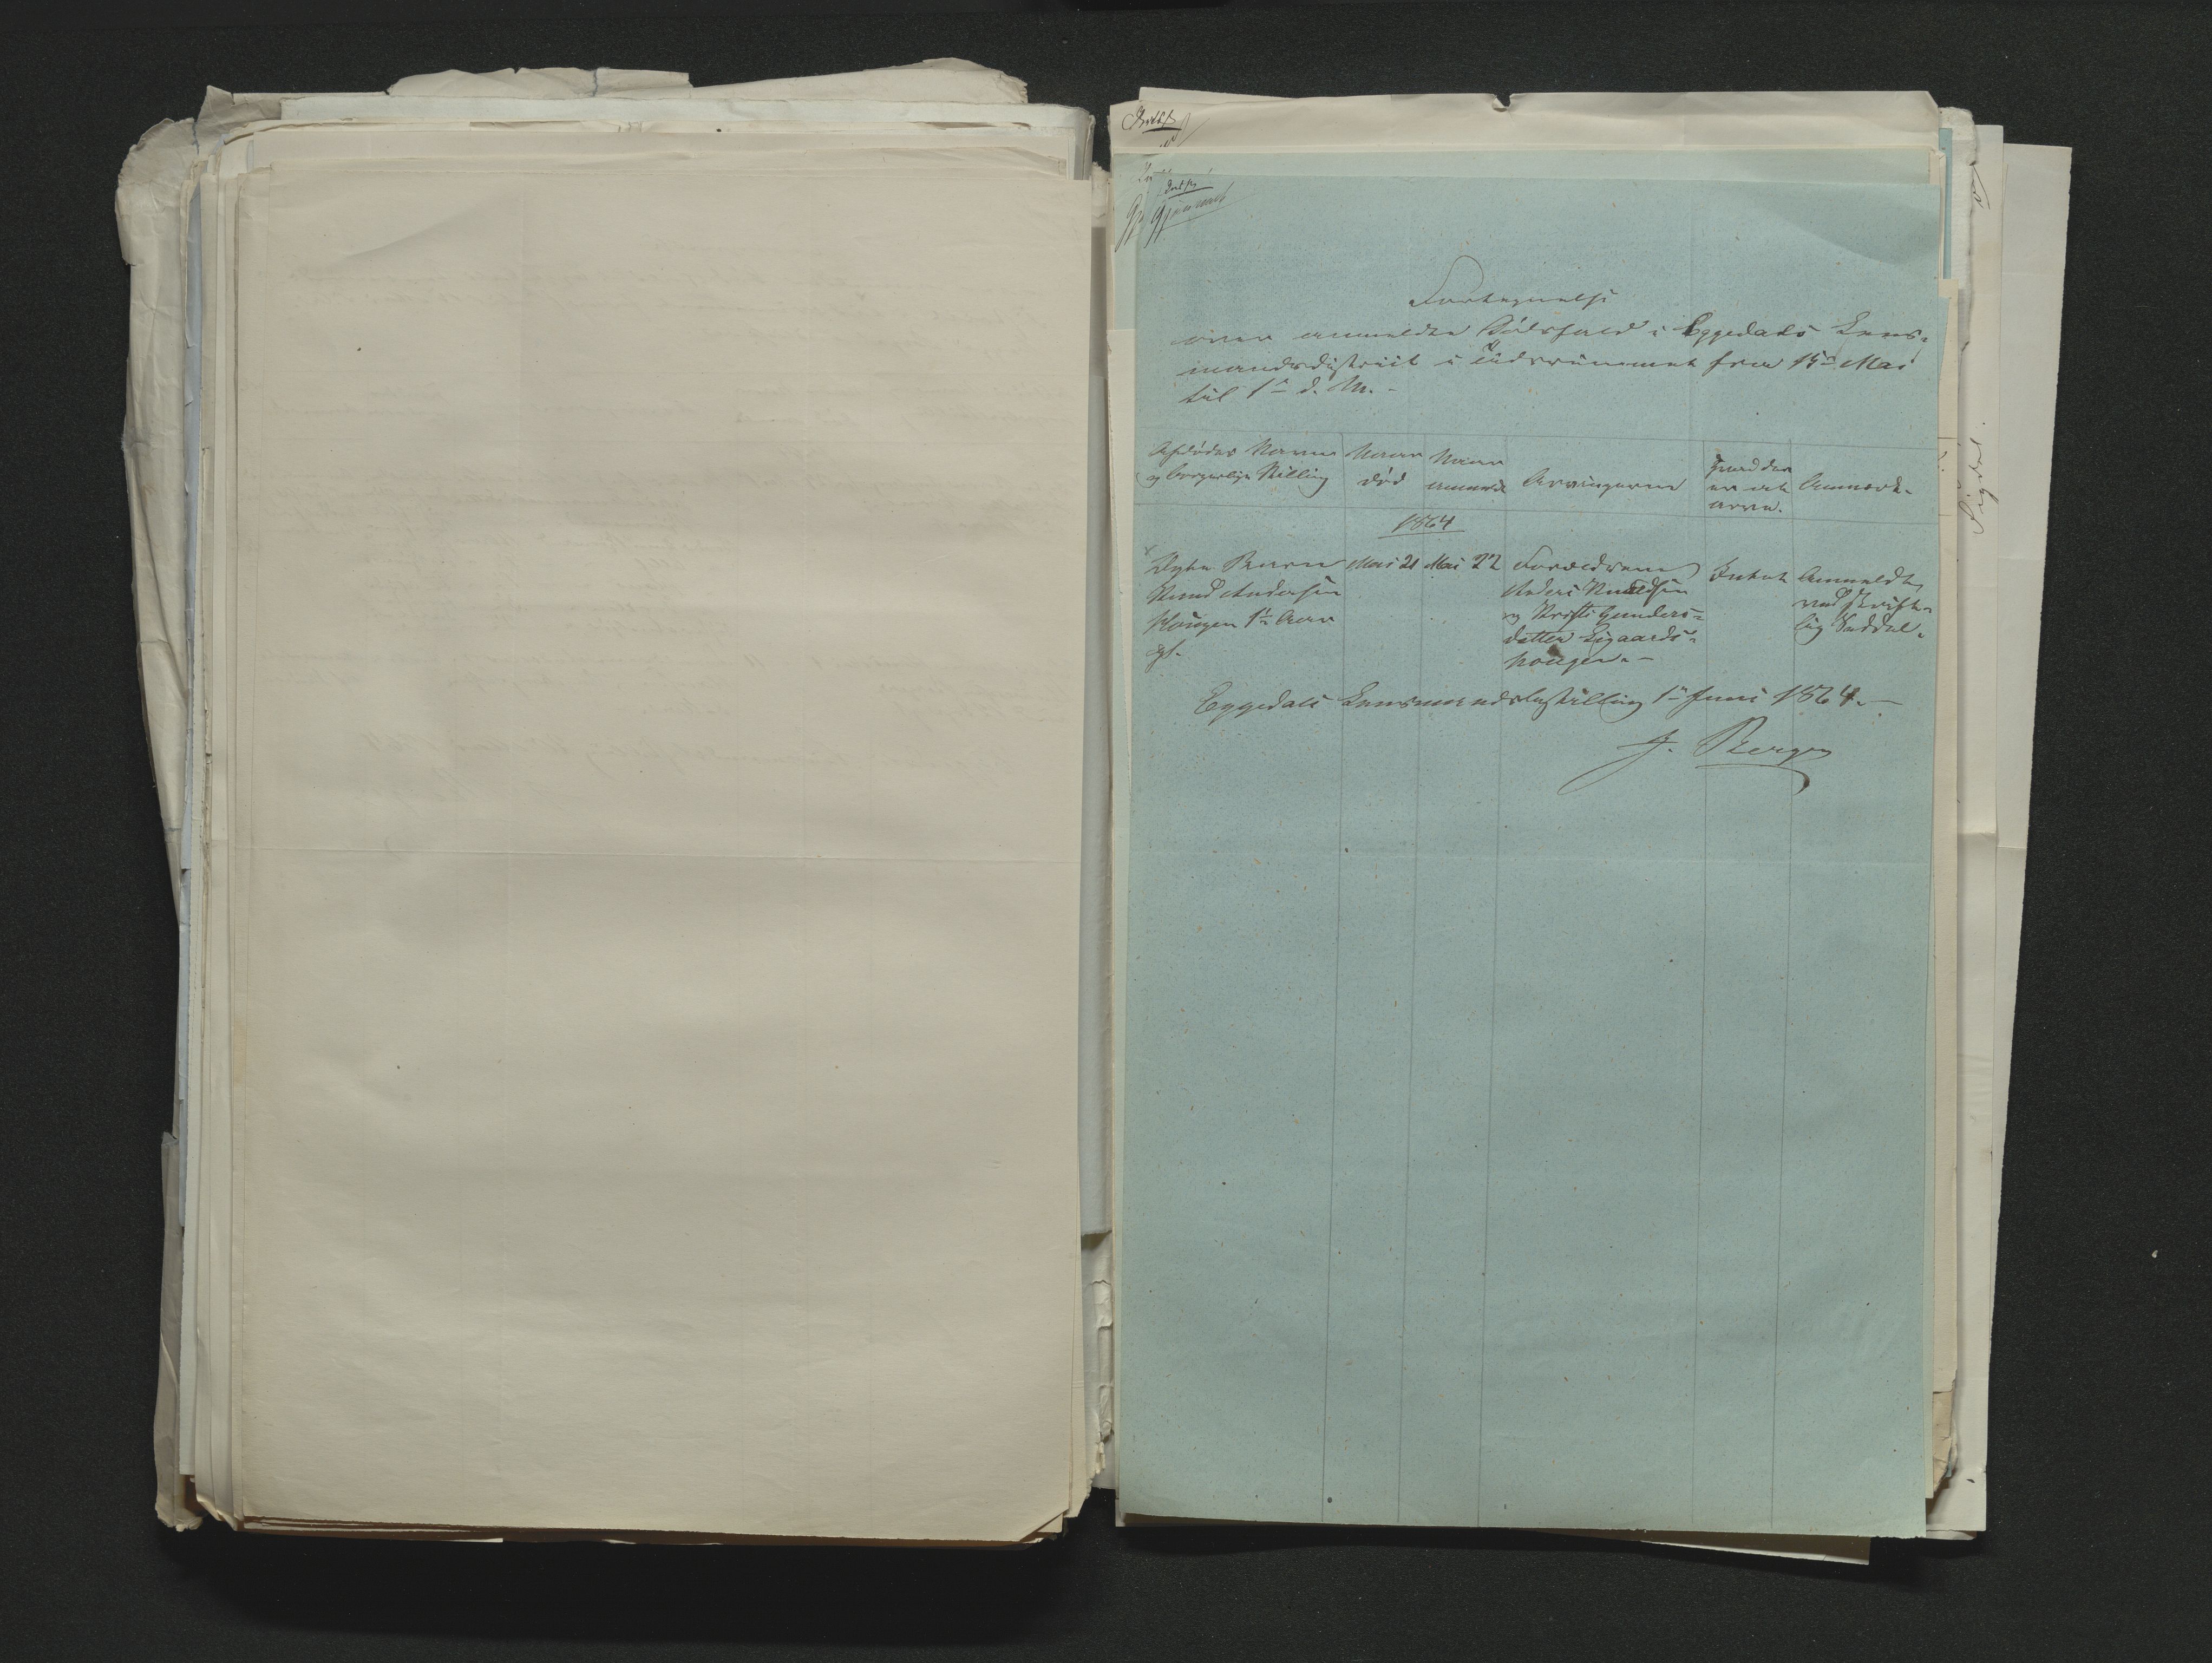 Fortegnelse
over anmeldte Dødsfald i Eggedals Lens-
mandsdistrikt i Tidsrummet fra 15de Mai
til 1ste d. M. -
Afdødes Navn
og borgerlige Stilling
Naar
død
Naar
anmeldt
Arvingerne
Hvad der
er at
arve.
Anmærk.
1864
Barn
Knud Andersen
Hougen 1½ Aar
gl.
Mai 21
Mai 22
Forældrene
Anders Knudsen
og Kristi Gunders-
datter Eigaards-
hougen. -
Intet
Anmeldt
ved skrift-
lig Seddel.
Eggedals Lensmandsbestilling 1ste Juni 1864. -
J. Bergen
Sigdal.